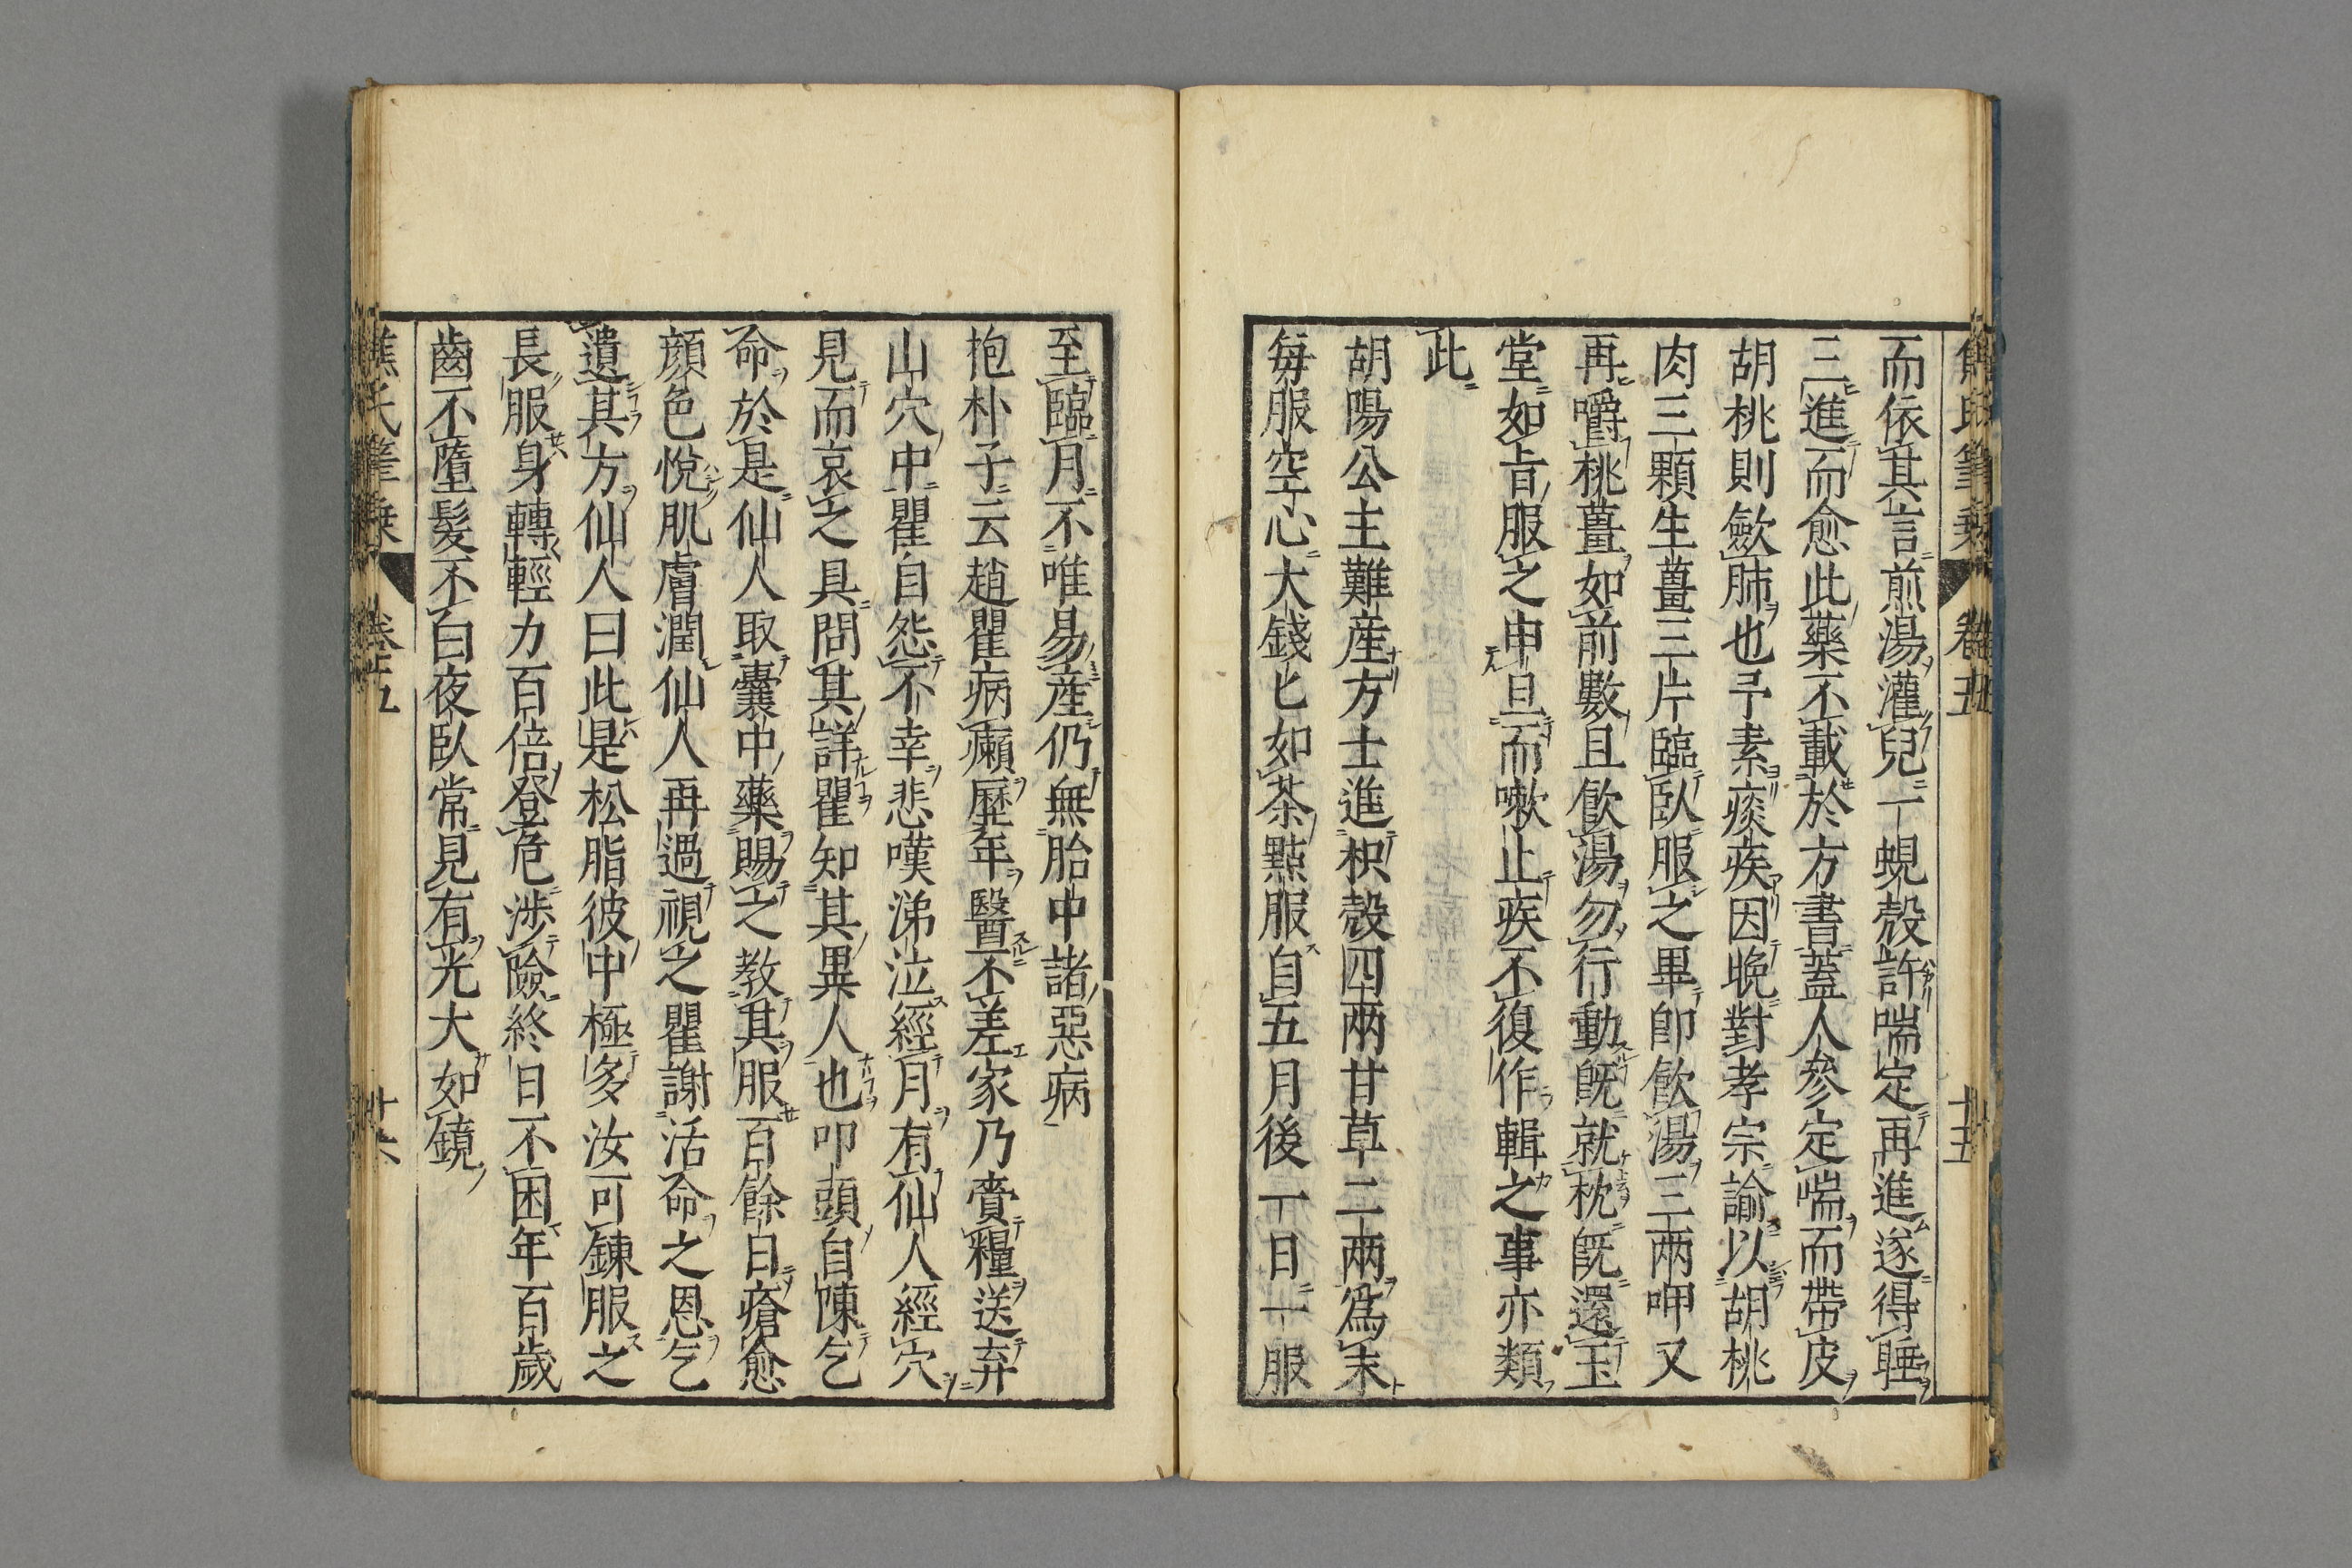 而依其言煎湯灌兒一蜆殼許喘定再進遂得睡
三進而愈此藥不載於方書蓋人參定喘而帶皮
胡桃則斂肺也予素痰疾因晚對孝宗諭以胡桃
肉三顆生薑三片臨臥服之畢卽飲湯三兩呷又
再嚼桃薑如前數且飲湯勿行動旣就枕旣還玉
堂如旨服之申旦而嗽止疾不復作輯之事亦類
此
胡陽公主難産方士進枳殼四兩甘草二兩爲末
每服空心大錢匕如茶點服自五月後一日一服
至臨月不唯易産仍無胎中諸惡病
抱朴子云趙瞿病癩歷年醫不差家乃賷糧送弃
山穴中瞿自怨不幸悲嘆涕泣經月有仙人經穴
見而哀之具問其詳瞿知其異人也叩頭自陳乞
命於是仙人取囊中藥賜之教其服百餘日瘡愈
顔色悅肌膚潤仙人再過視之瞿謝活命之恩乞
遺其方仙人曰此是松脂彼中極多汝可鍊服之
長服身轉輕力百倍登危涉險終日不困年百歲
齒不墮髮不白夜臥常見有光大如鏡